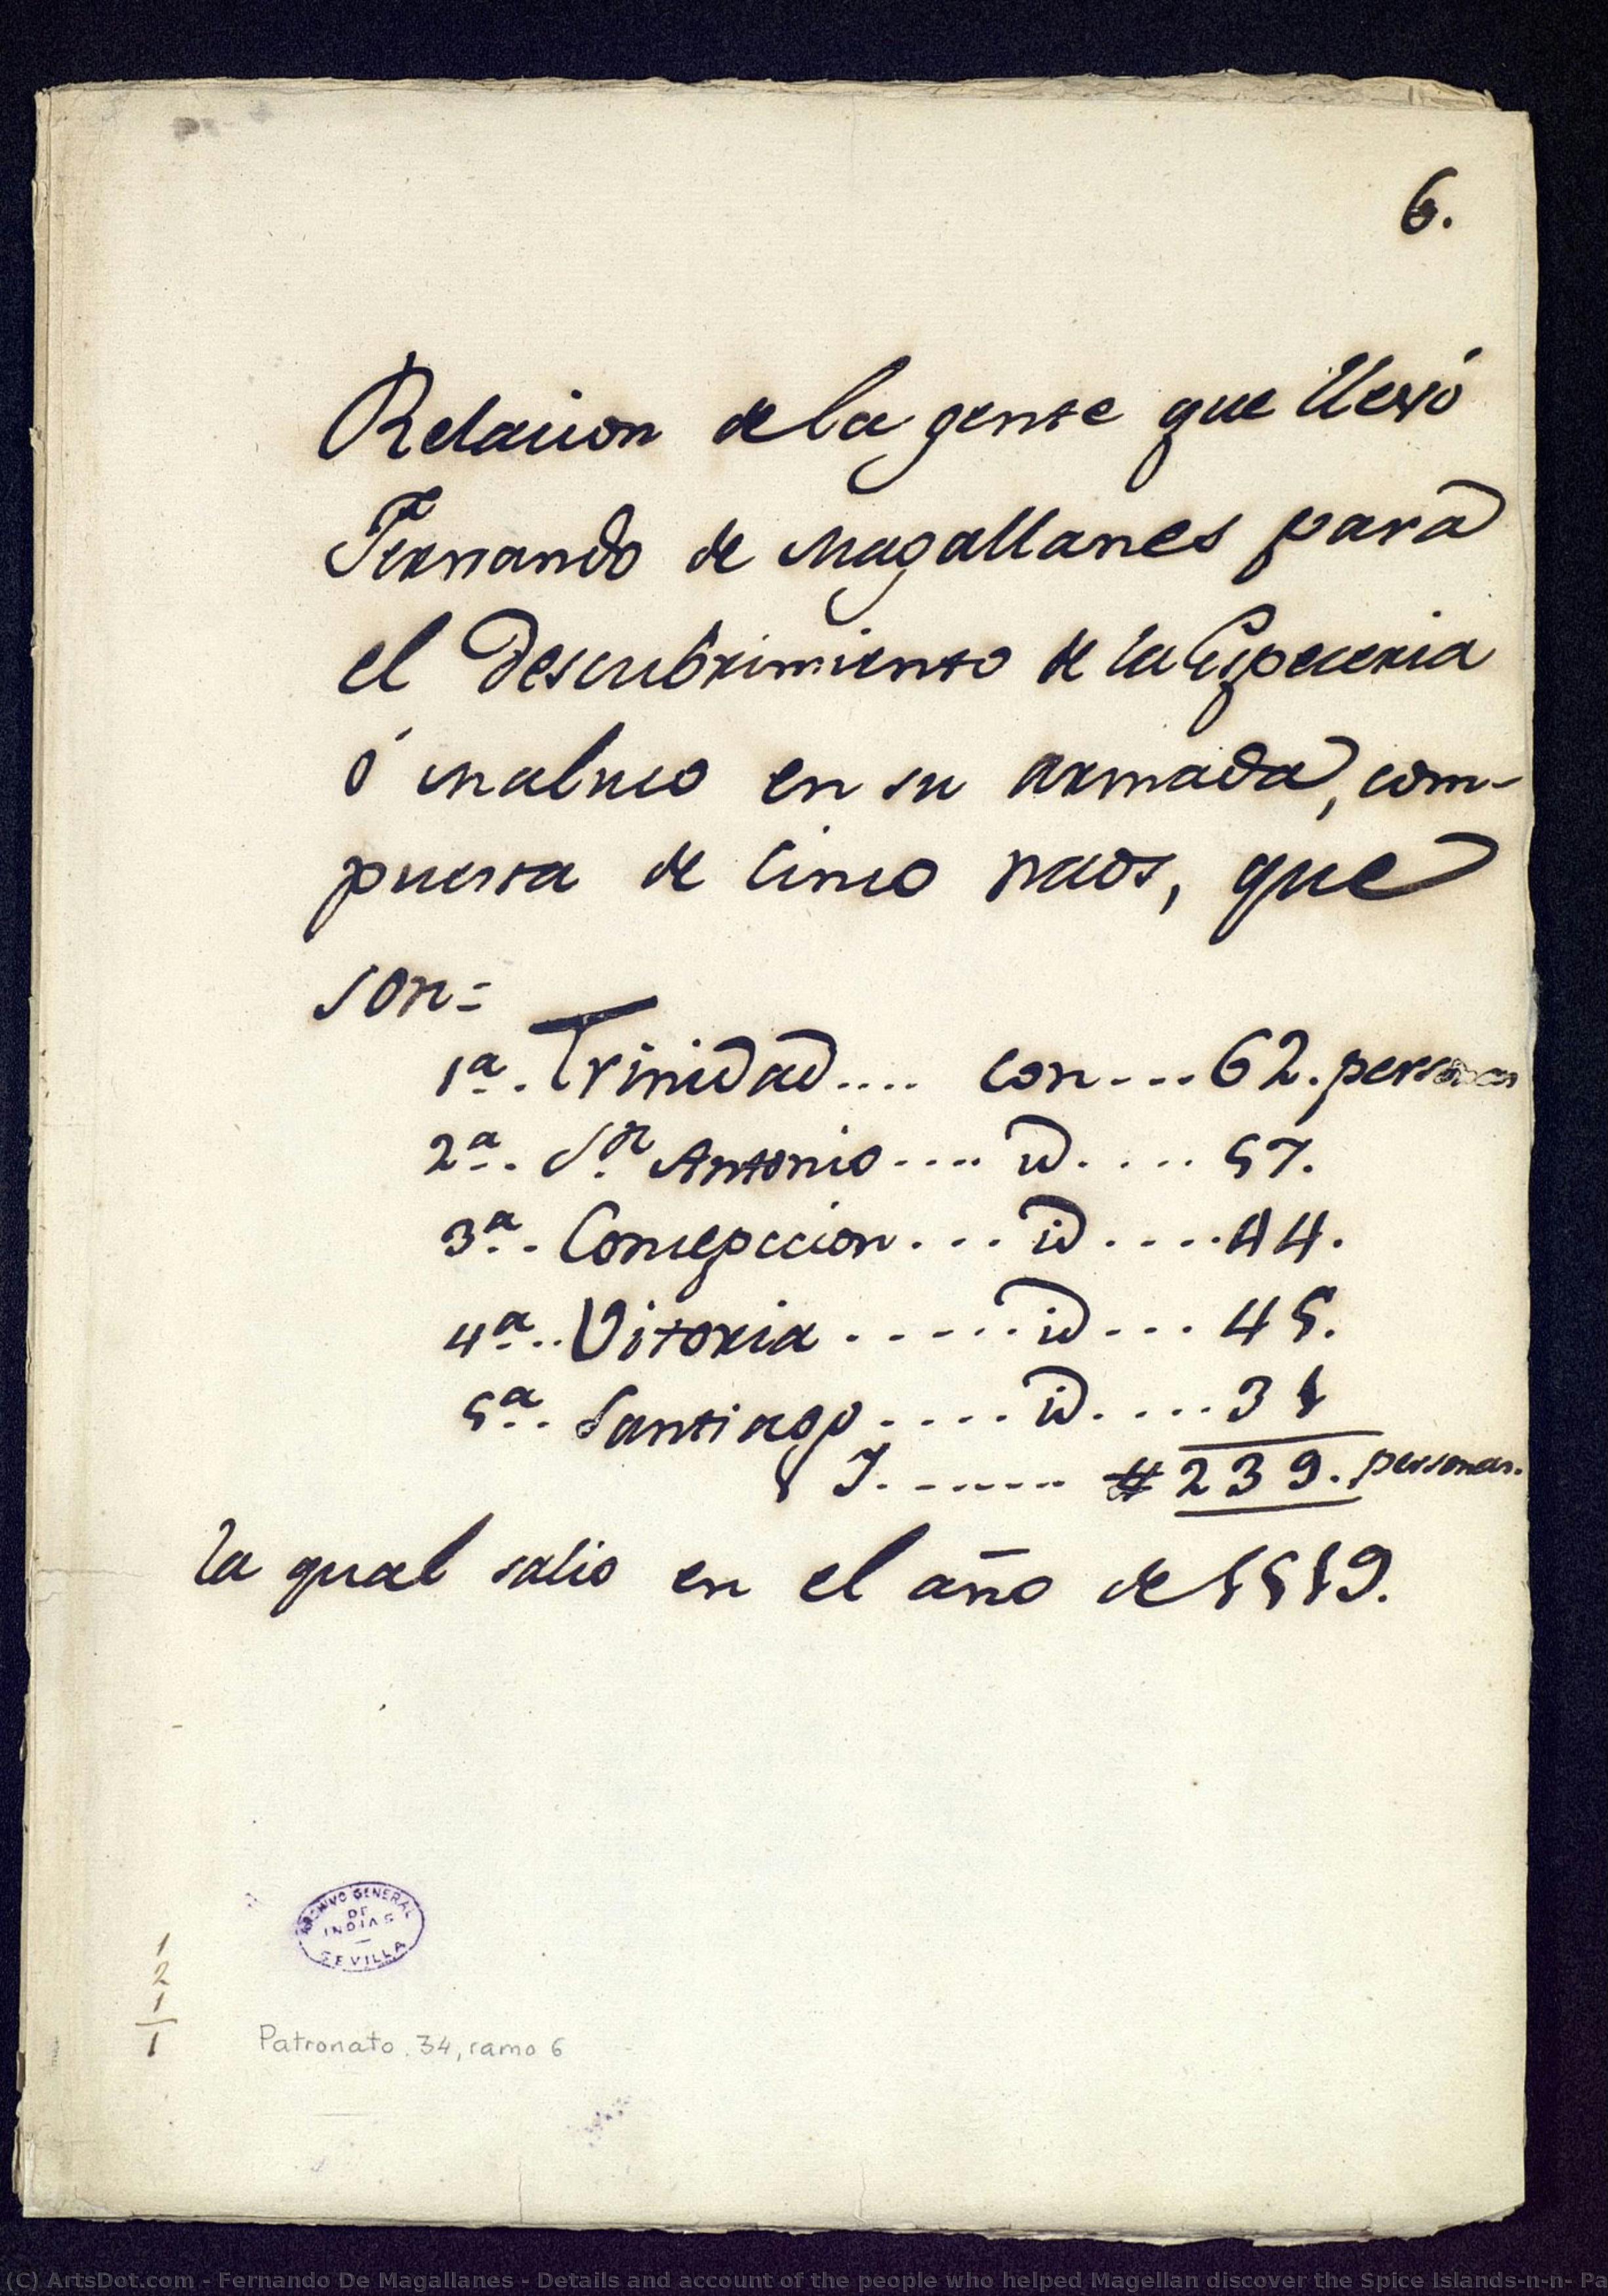 6.
Relacion de la gente que llevó
Fernando de Magallanes para
el Descubrimiento de la Especeria
ó Maluco en su armada, com-
puesta de Cinco naos, que
son=
1ª. Trinidad.... con....62. personas
2ª. Sn. Antonio.... id..... 57.
3ª. Concepccion.... id.....44.
4ª.. Vitoria...... id.... 45.
5ª. Santiago..... id.....31
# 239. personas.
la qual salio en el año de 1519.
ARCHIVO GENERAL
DE
INDIAS
SEVILLA
1
2
1
1
Patronato. 34, ramo 6
(C) ArtsDot.com - Fernando De Magallanes - Details and account of the people who helped Magellan discover the Spice Islands-n-n- Pa